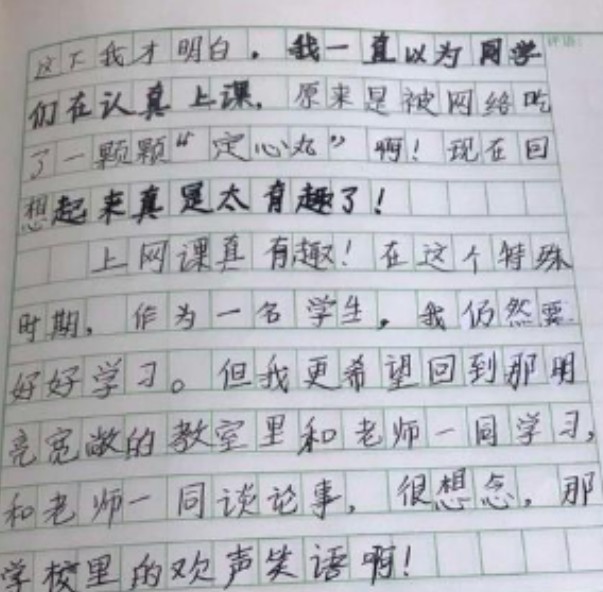 评语：
这下我才明白。我一直以为同学
们在认真上课，原来是被网络吃
了一颗颗“定心丸”啊！现在回
想起来真是太有趣了！
上网课真有趣！在这个特殊
时期，作为一名学生，我仍然要
好好学习。但我更希望回到那明
亮宽敞的教室里和老师一同学习，
和老师一同谈论事，很想念，那
学校里的欢声笑语啊！